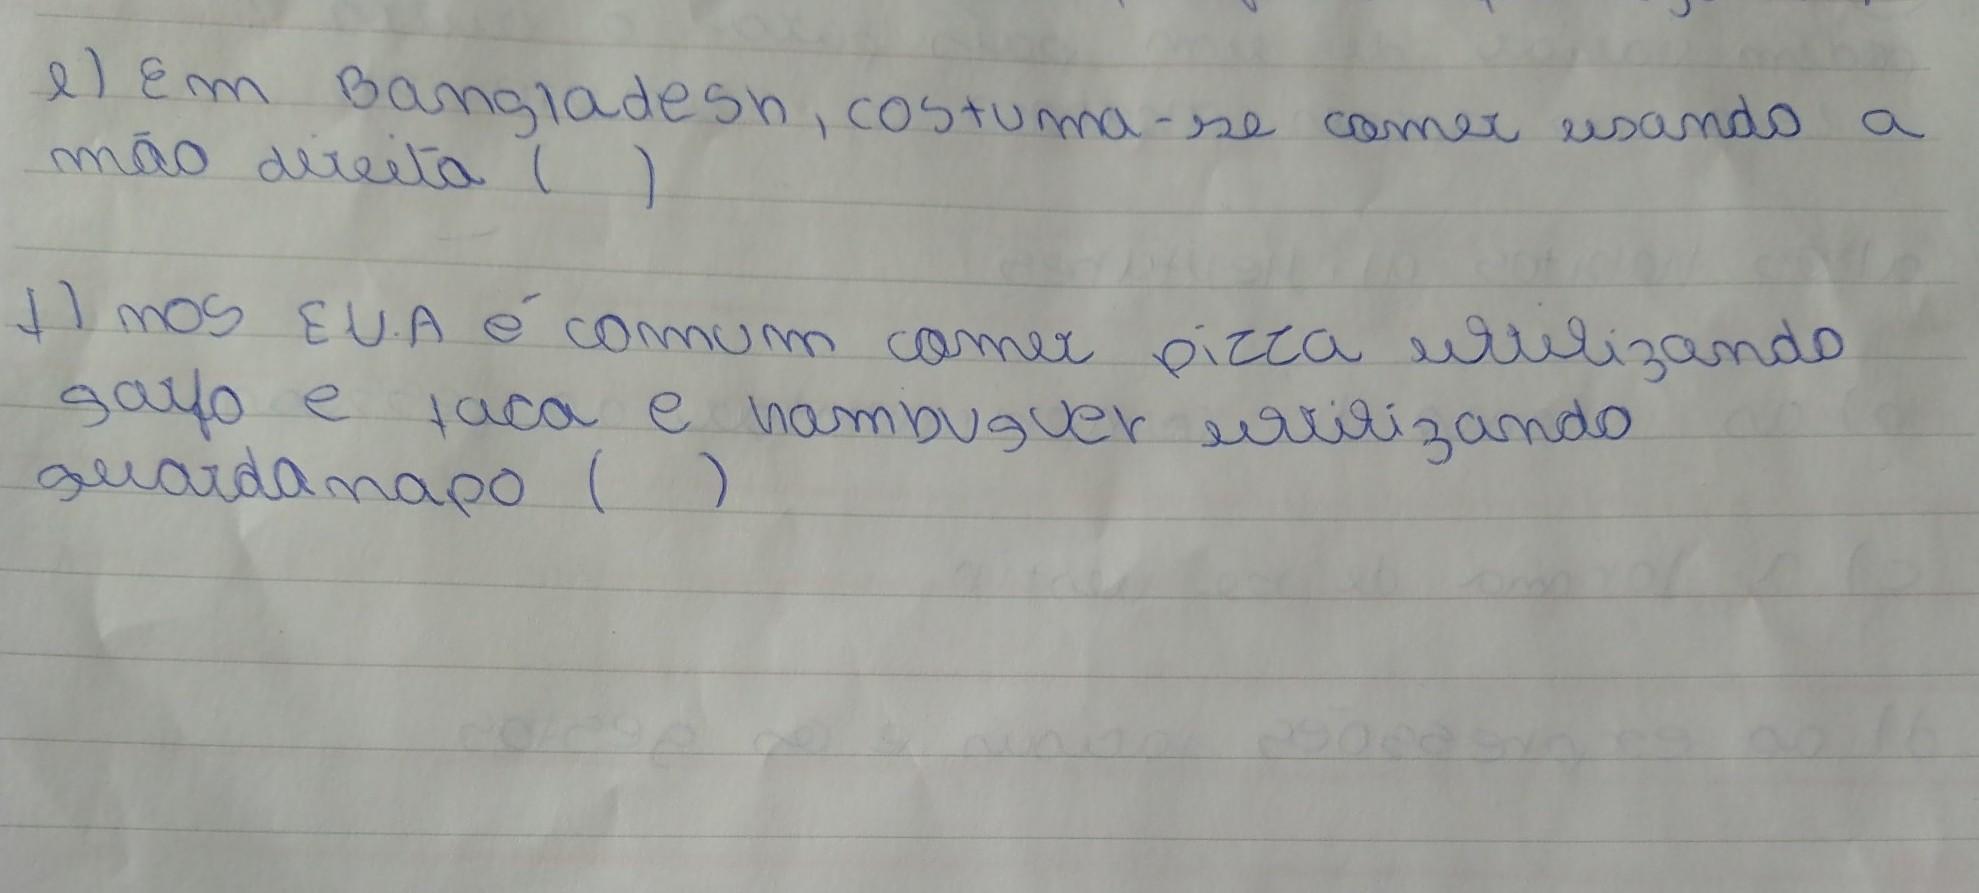 e) Em Bangladesh, costuma-se comer usando a
mão direita ( )
f) nos EU.A é comum comer pizza utilizando
gayfo e faca e hambuguer utilizando
guardanapo ( )